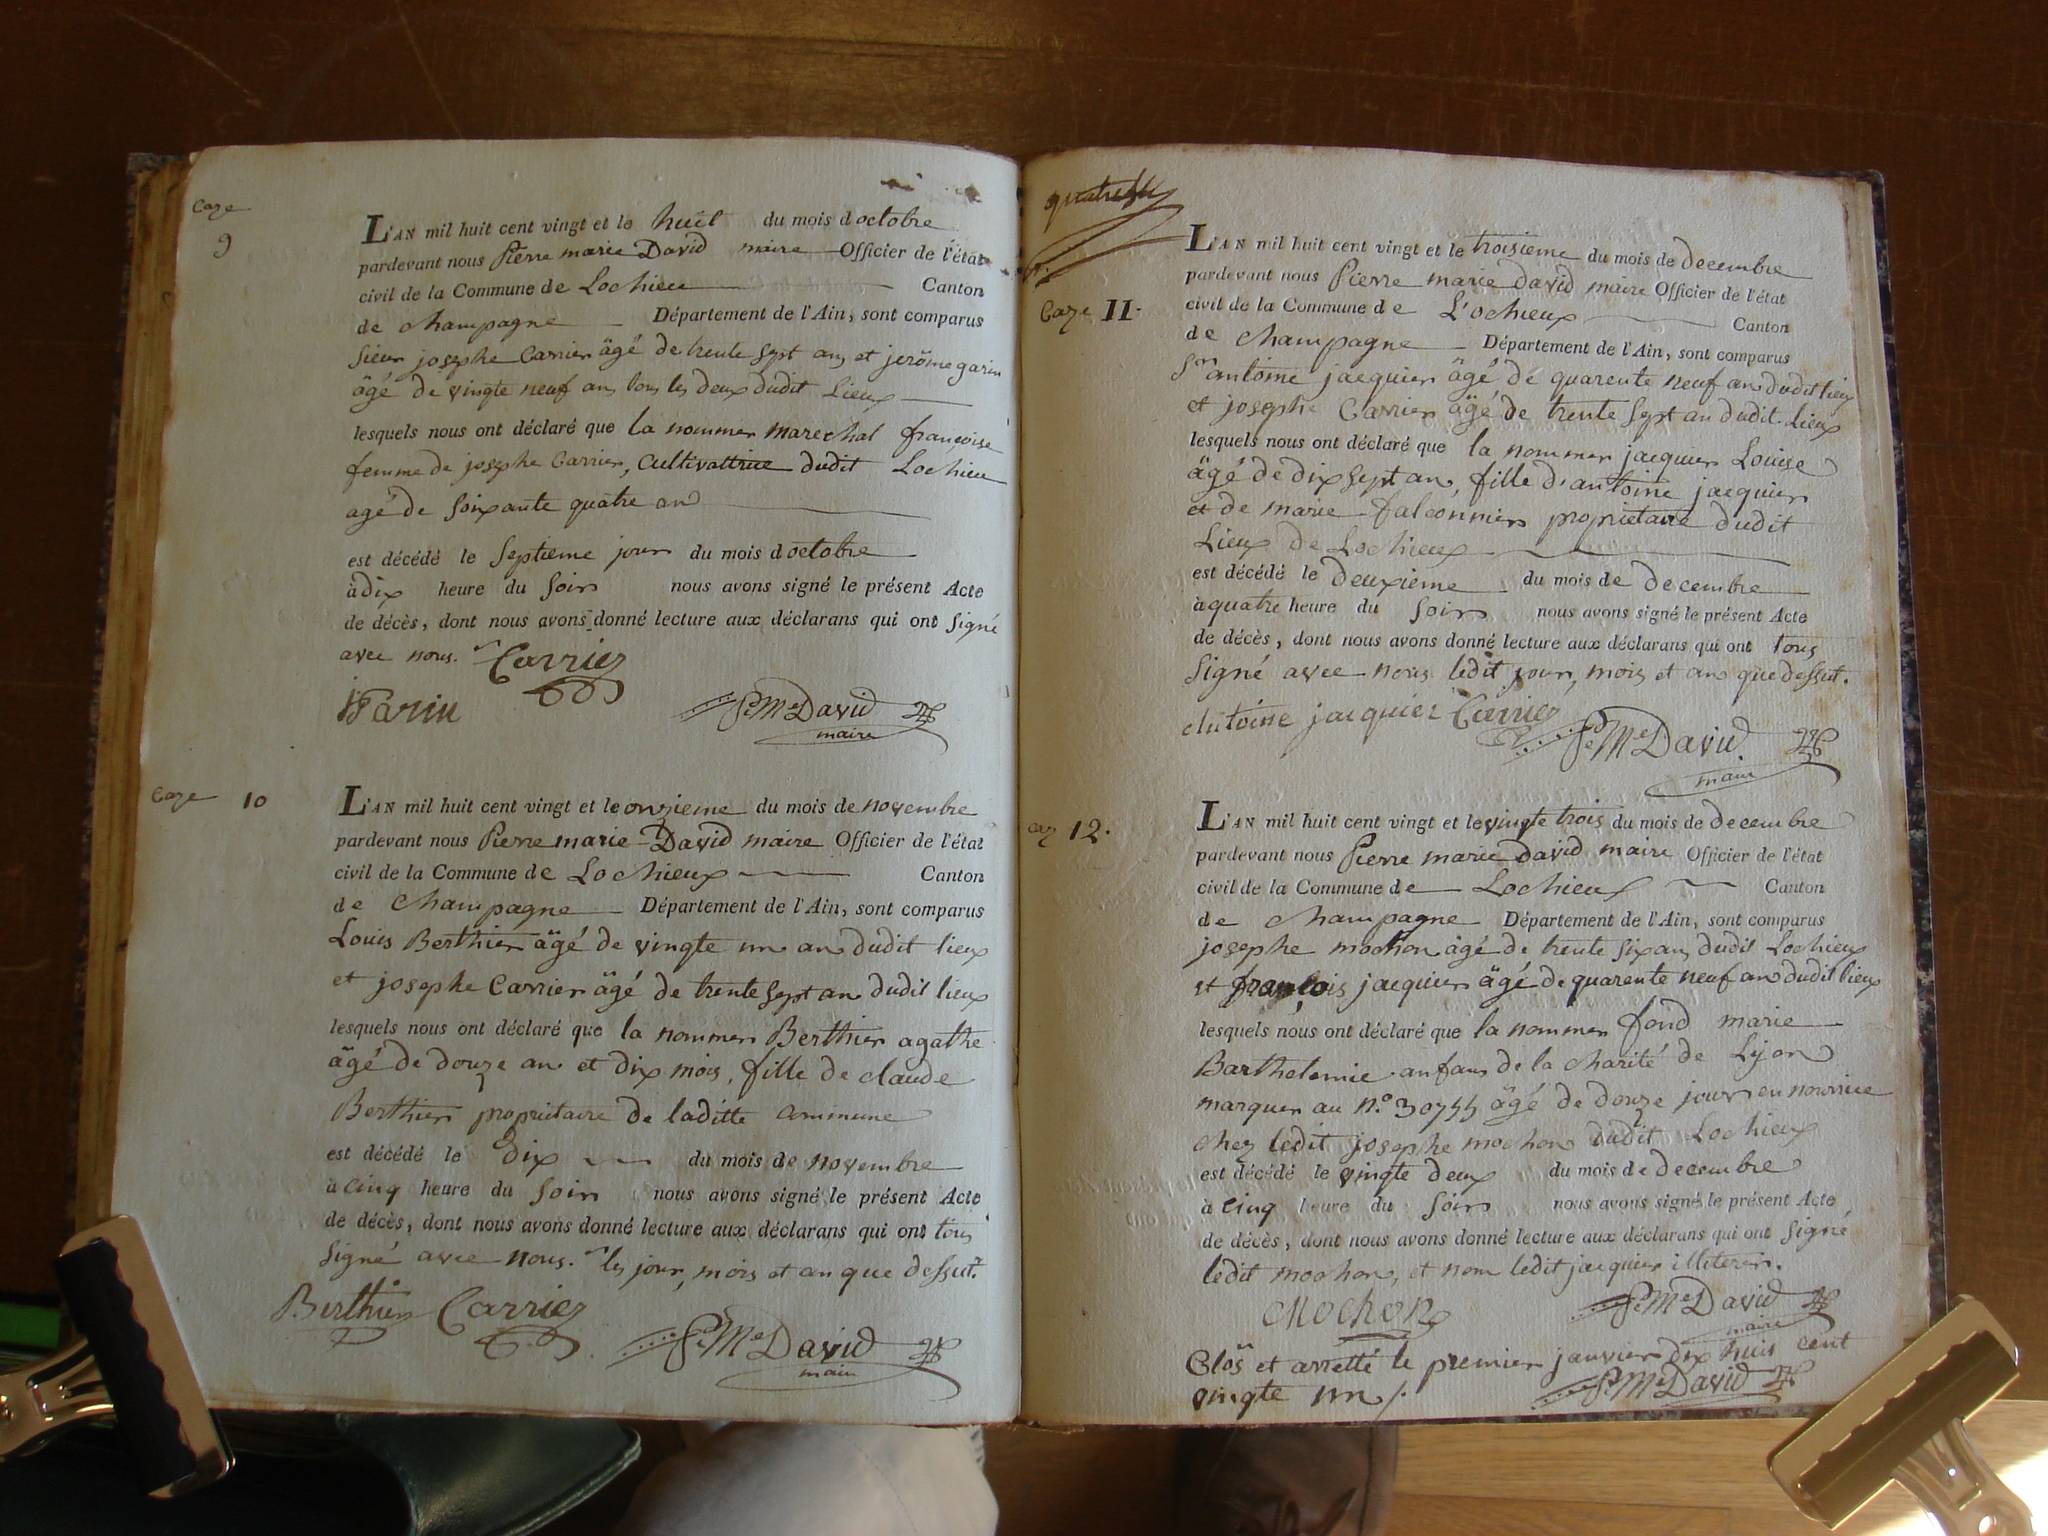 Caze
9
L'AN mil huit cent vingt et le huit du mois d octobre
pardevant nous Pierre marie David maire Officier de l'état
civil de la Commune de Lochieu Canton
de champagne Département de l'Ain, sont comparus
sieur josephe Carrier âgé de trente sept ans et jerôme garin
âgé de vingte neuf ans tous les deux dudit Lieux
lesquels nous ont déclaré que la nommer marechal françoise
femme de josephe Carrier, Cultivattrice dudit Lochieu
agé de soixante quatre an
est décédé le Septieme jour du mois d octobre
à dix heure du Soir nous avons signé le présent Acte
de décès, dont nous avons donné lecture aux déclarans qui ont signé
avec nous. Carrier
Garin
P M David
maire
Caze 10
L'AN mil huit cent vingt et le onzieme du mois de novembre
pardevant nous Pierre marie David maire Officier de l'état
civil de la Commune de Lochieux Canton
de champagne Département de l'Ain, sont comparus
Louis Berthier âgé de vingte un an dudit lieux
et josephe Carrier âgé de trente sept an dudit lieux
lesquels nous ont déclaré que la nommer Berthier agathe
âgé de douze an et dix mois, fille de claude
Berthier propriétaire de laditte Commune
est décédé le Dix du mois de novembre
à cinq heure du Soir nous avons signé le présent Acte
de décès, dont nous avons donné lecture aux déclarans qui ont tous
Signé avec nous. les jour, mois et an que dessut.
Berthier Carrier
P Me David
maire
Caze 11.
L'AN mil huit cent vingt et le troisieme du mois de decembre
pardevant nous Pierre marie David maire Officier de l'état
civil de la Commune de L'ochieux Canton
de champagne Département de l'Ain, sont comparus
Sr antoine jacquier âgé de quarente neuf an dudit lieux
et josephe Carrier âgé de trente sept an dudit Lieux
lesquels nous ont déclaré que la nommer jacquier Louise
âgé de dix sept an, fille d'antoine jacquier
et de marie falconnier proprietaire dudit
Lieux de Lochieux
est décédé le deuxieme du mois de decembre
à quatre heure du Soir nous avons signé le présent Acte
de décès, dont nous avons donné lecture aux déclarans qui ont tous
Signé avec nous ledit jour, mois et an que dessut.
Antoine jacquier Carrier
P Me David
maire
Caz 12.
L'AN mil huit cent vingt et le vingte trois du mois de decembre
pardevant nous Pierre marie David maire Officier de l'état
civil de la Commune de Lochieux Canton
de champagne Département de l'Ain, sont comparus
josephe mochon âgé de trente six ans dudit Lochieux
et françois jacquier âgé de quarente neuf an dudit lieux
lesquels nous ont déclaré que la nommer fond marie
Barthelemie anfans de la charité de Lyon
marquer au n.º âgé de douze jours en nourrice
chez ledit josephe mochon dudit Lochieux
est décédé le vingte deux du mois de decembre
à cinq heure du Soir nous avons signé le présent Acte
de décès, dont nous avons donné lecture aux déclarans qui ont Signé
ledit mochon, et nom ledit jacquier illiterer.
Mochon
P Me David
maire
Clos et arretté le premier janvier dix huit cent
vingte un
P Me David